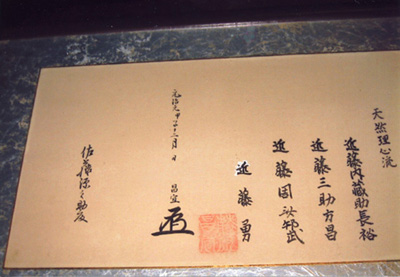 天然理心流
近藤内蔵助長裕
近藤三助方昌
近藤周助邦武
近藤勇
昌宜
元治元甲子十月 日
佐藤源之助殿